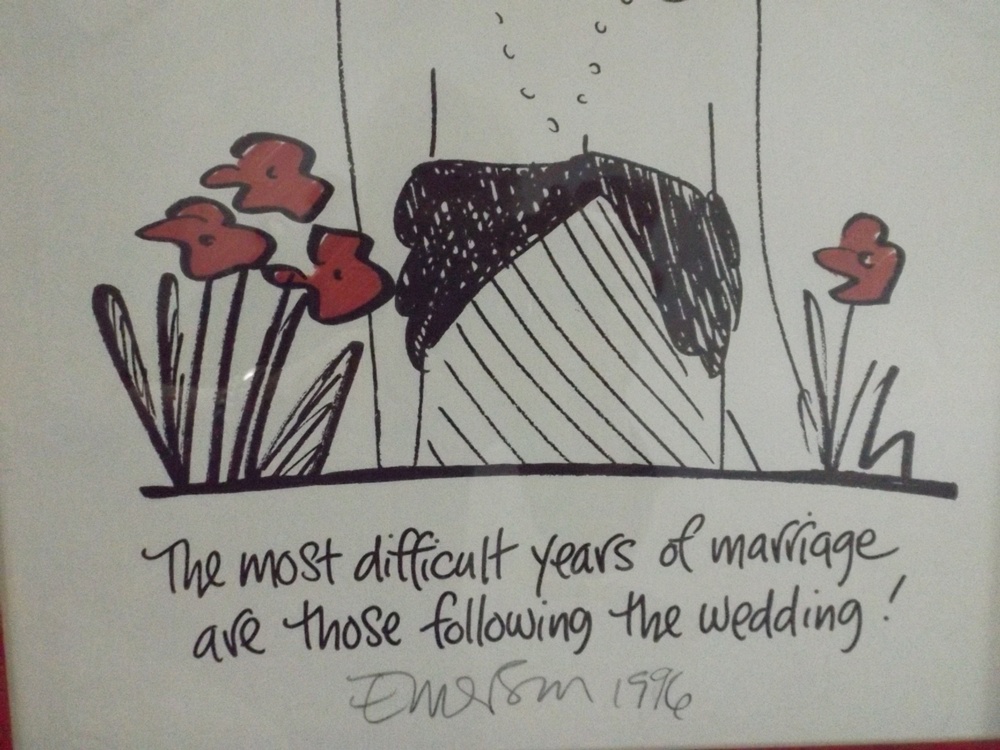 The most difficult years of marriage
are those following the wedding!
Emerson 1996